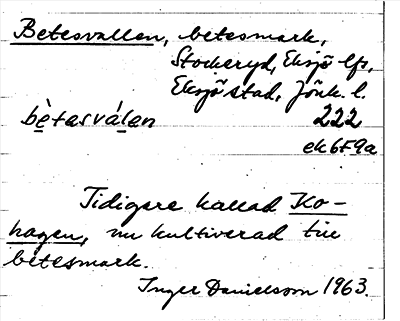 Betesvallen, betesmark,
Stockeryd, Eksjö lfs,
Eksjö stad, Jönk. l.
bètasválen 222
ek 6F9a
Tidigare kallad Ko-
hagen, nu kultiverad till
betesmark.
Inger Danielsson 1963.